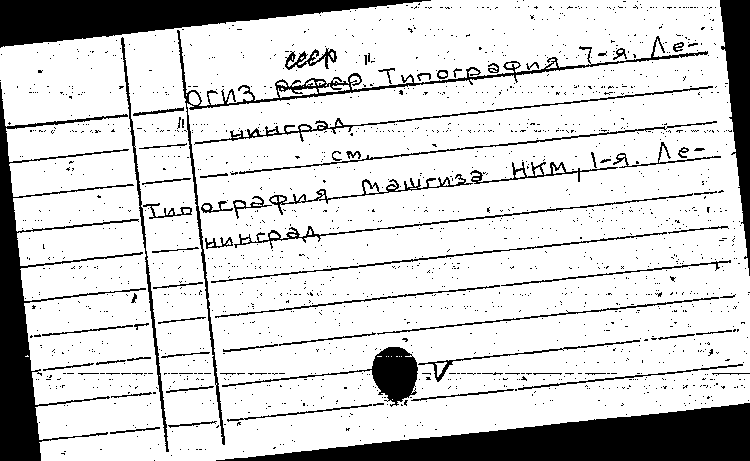 СССР
ОГИЗ РСФСР. Типография 7-я. Ле-
нинград,
см.
Типография Машгиза НКМ, 1-я. Ле-
нинград
V